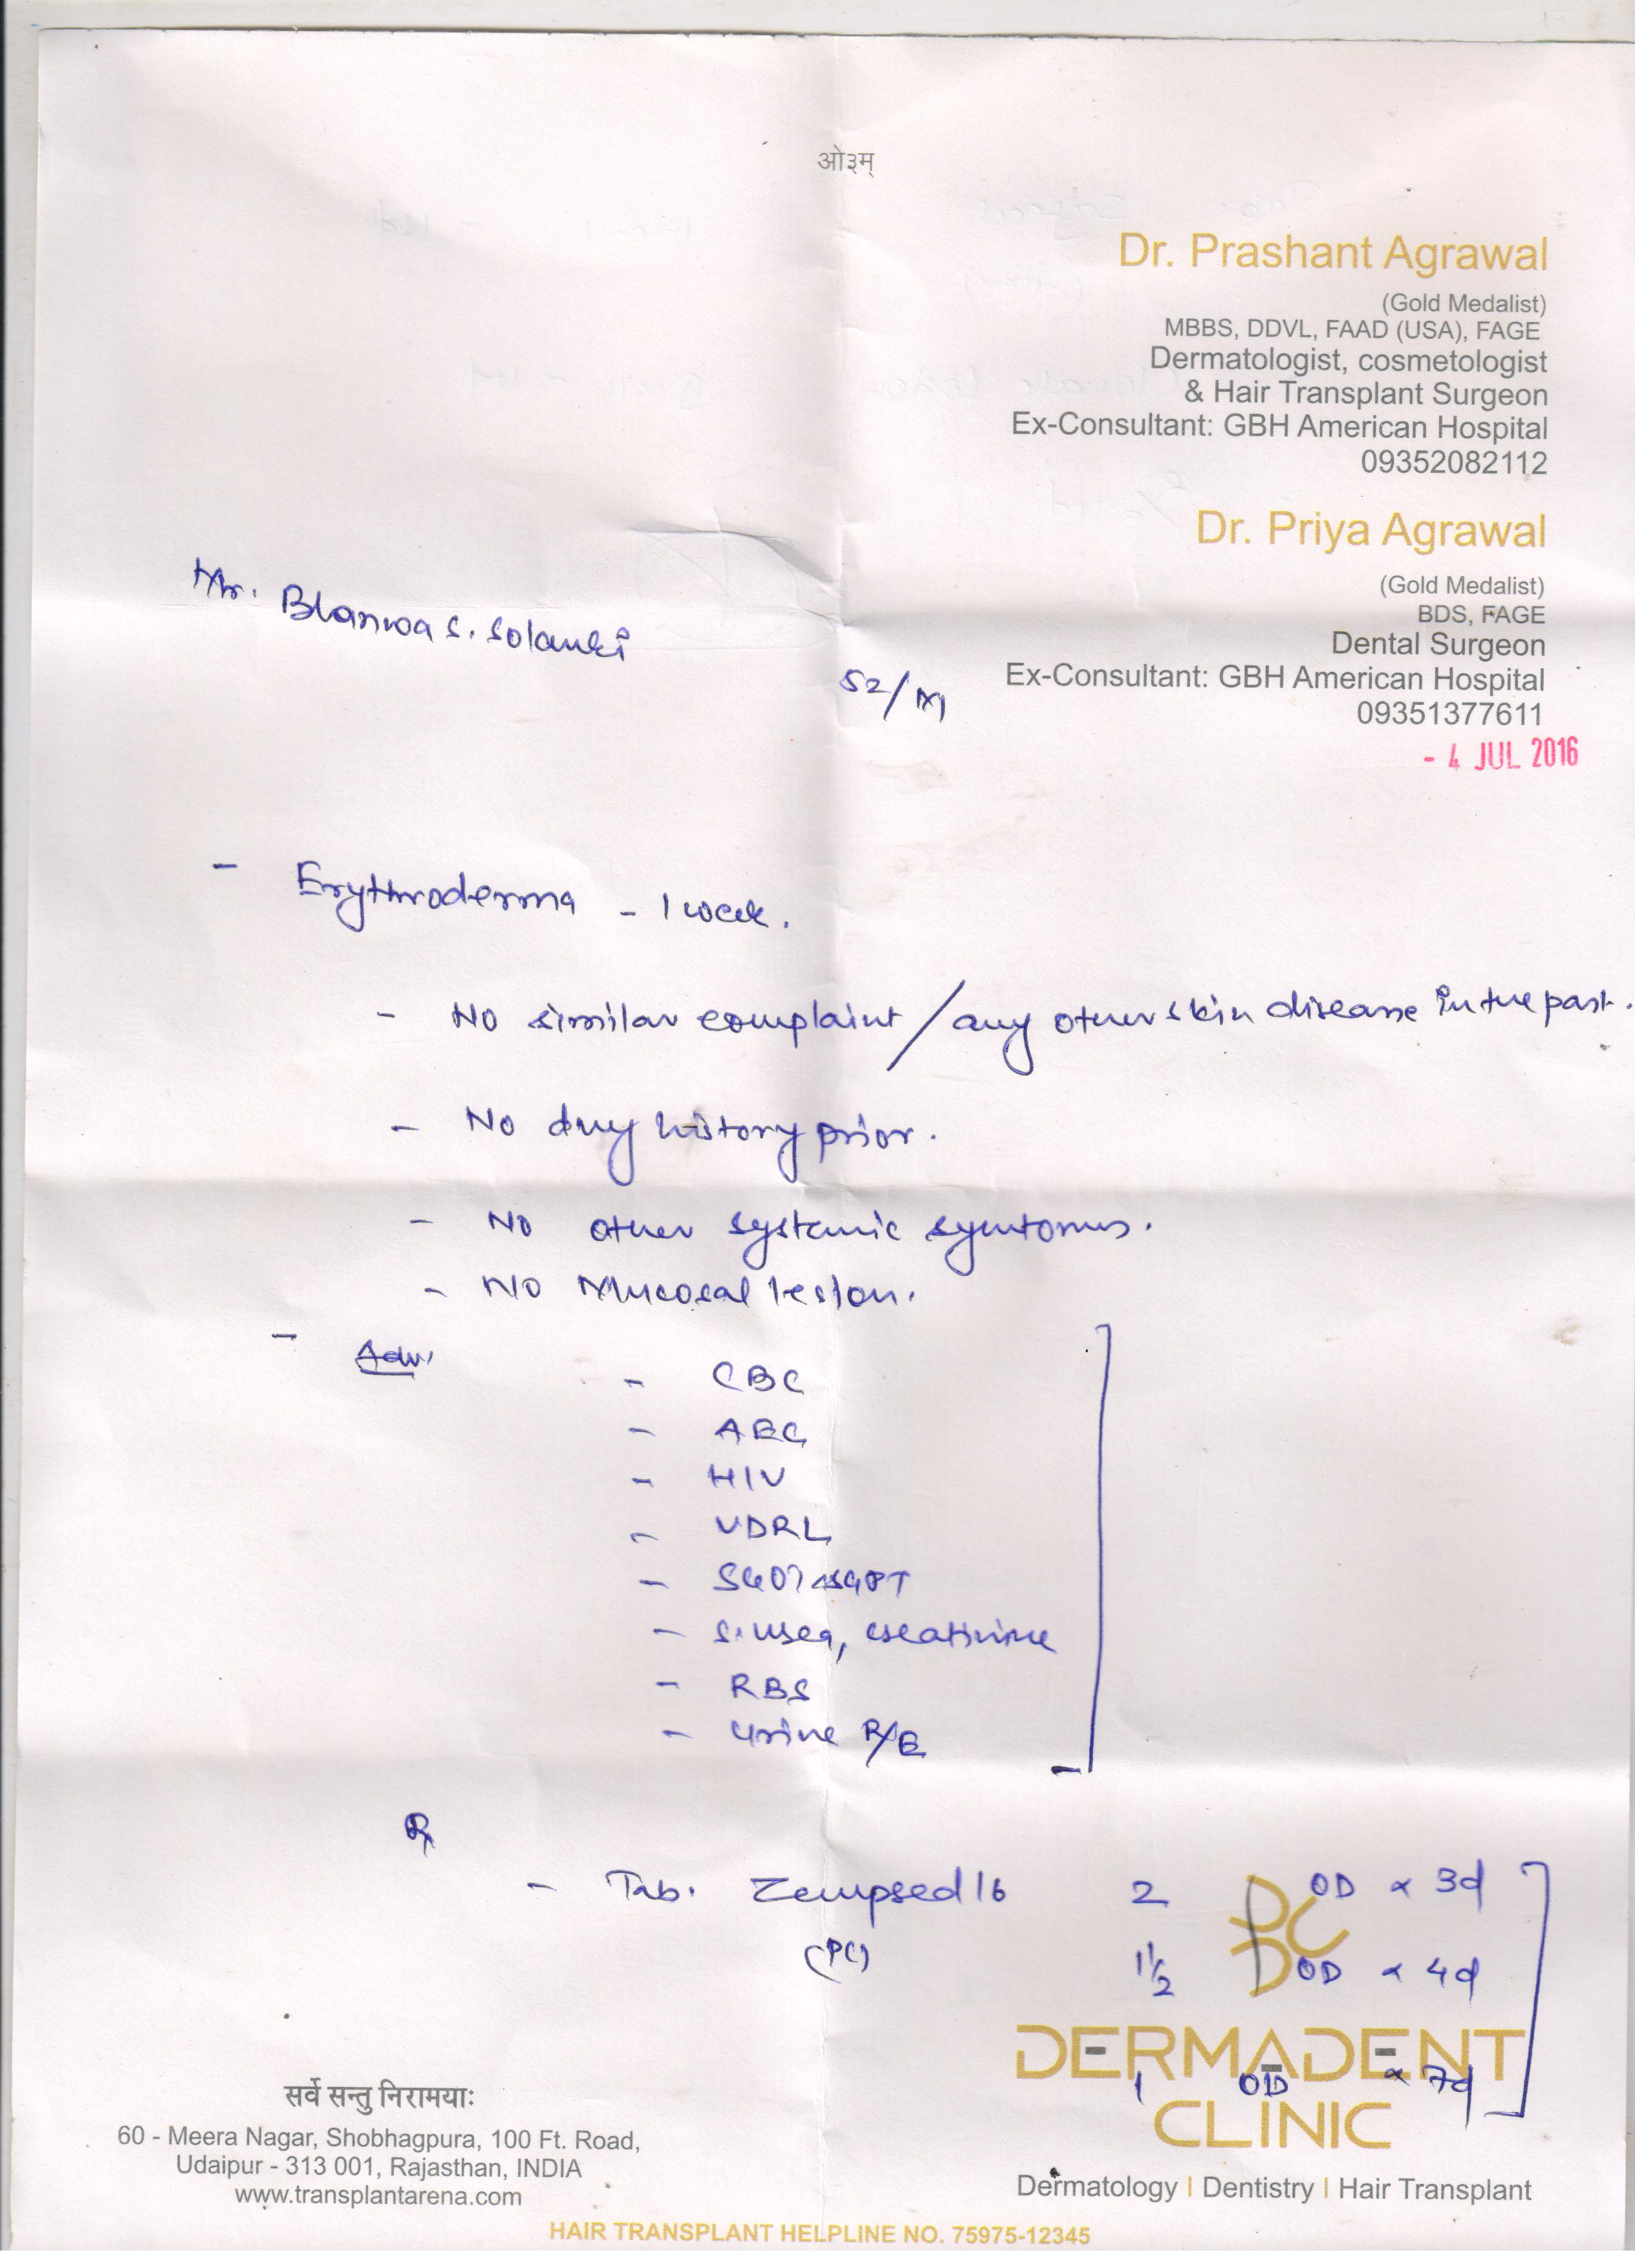 ओ३म्
Dr. Prashant Agrawal
(Gold Medalist)
MBBS, DDVL, FAAD (USA), FAGE
Dermatologist, cosmetologist
& Hair Transplant Surgeon
Ex-Consultant: GBH American Hospital
09352082112
Dr. Priya Agrawal
(Gold Medalist)
BDS, FAGE
Dental Surgeon
Ex-Consultant: GBH American Hospital
09351377611
- 4 JUL 2016
Mr. S. Solanki
52/M
- Erythroderma - 1 week.
- No similar complaint / any other skin disease in the past.
- No drug history prior.
- No other systemic symtoms.
- No Mucosal lesion.
- Adv.
- CBC
- AEC
- HIV
- VDRL
- SGOT SGPT
- S. urea, creatinine
- RBS
- Urine R/E
Rx
- Tab. Zempred 16 2 OD x 3d
(PC) 1 1/2 OD x 4d
1 OD x 7d
DERMADENT
CLINIC
Dermatology | Dentistry | Hair Transplant
सर्वे सन्तु निरामयाः
60 - Meera Nagar, Shobhagpura, 100 Ft. Road,
Udaipur - 313 001, Rajasthan, INDIA
www.transplantarena.com
HAIR TRANSPLANT HELPLINE NO. 75975-12345